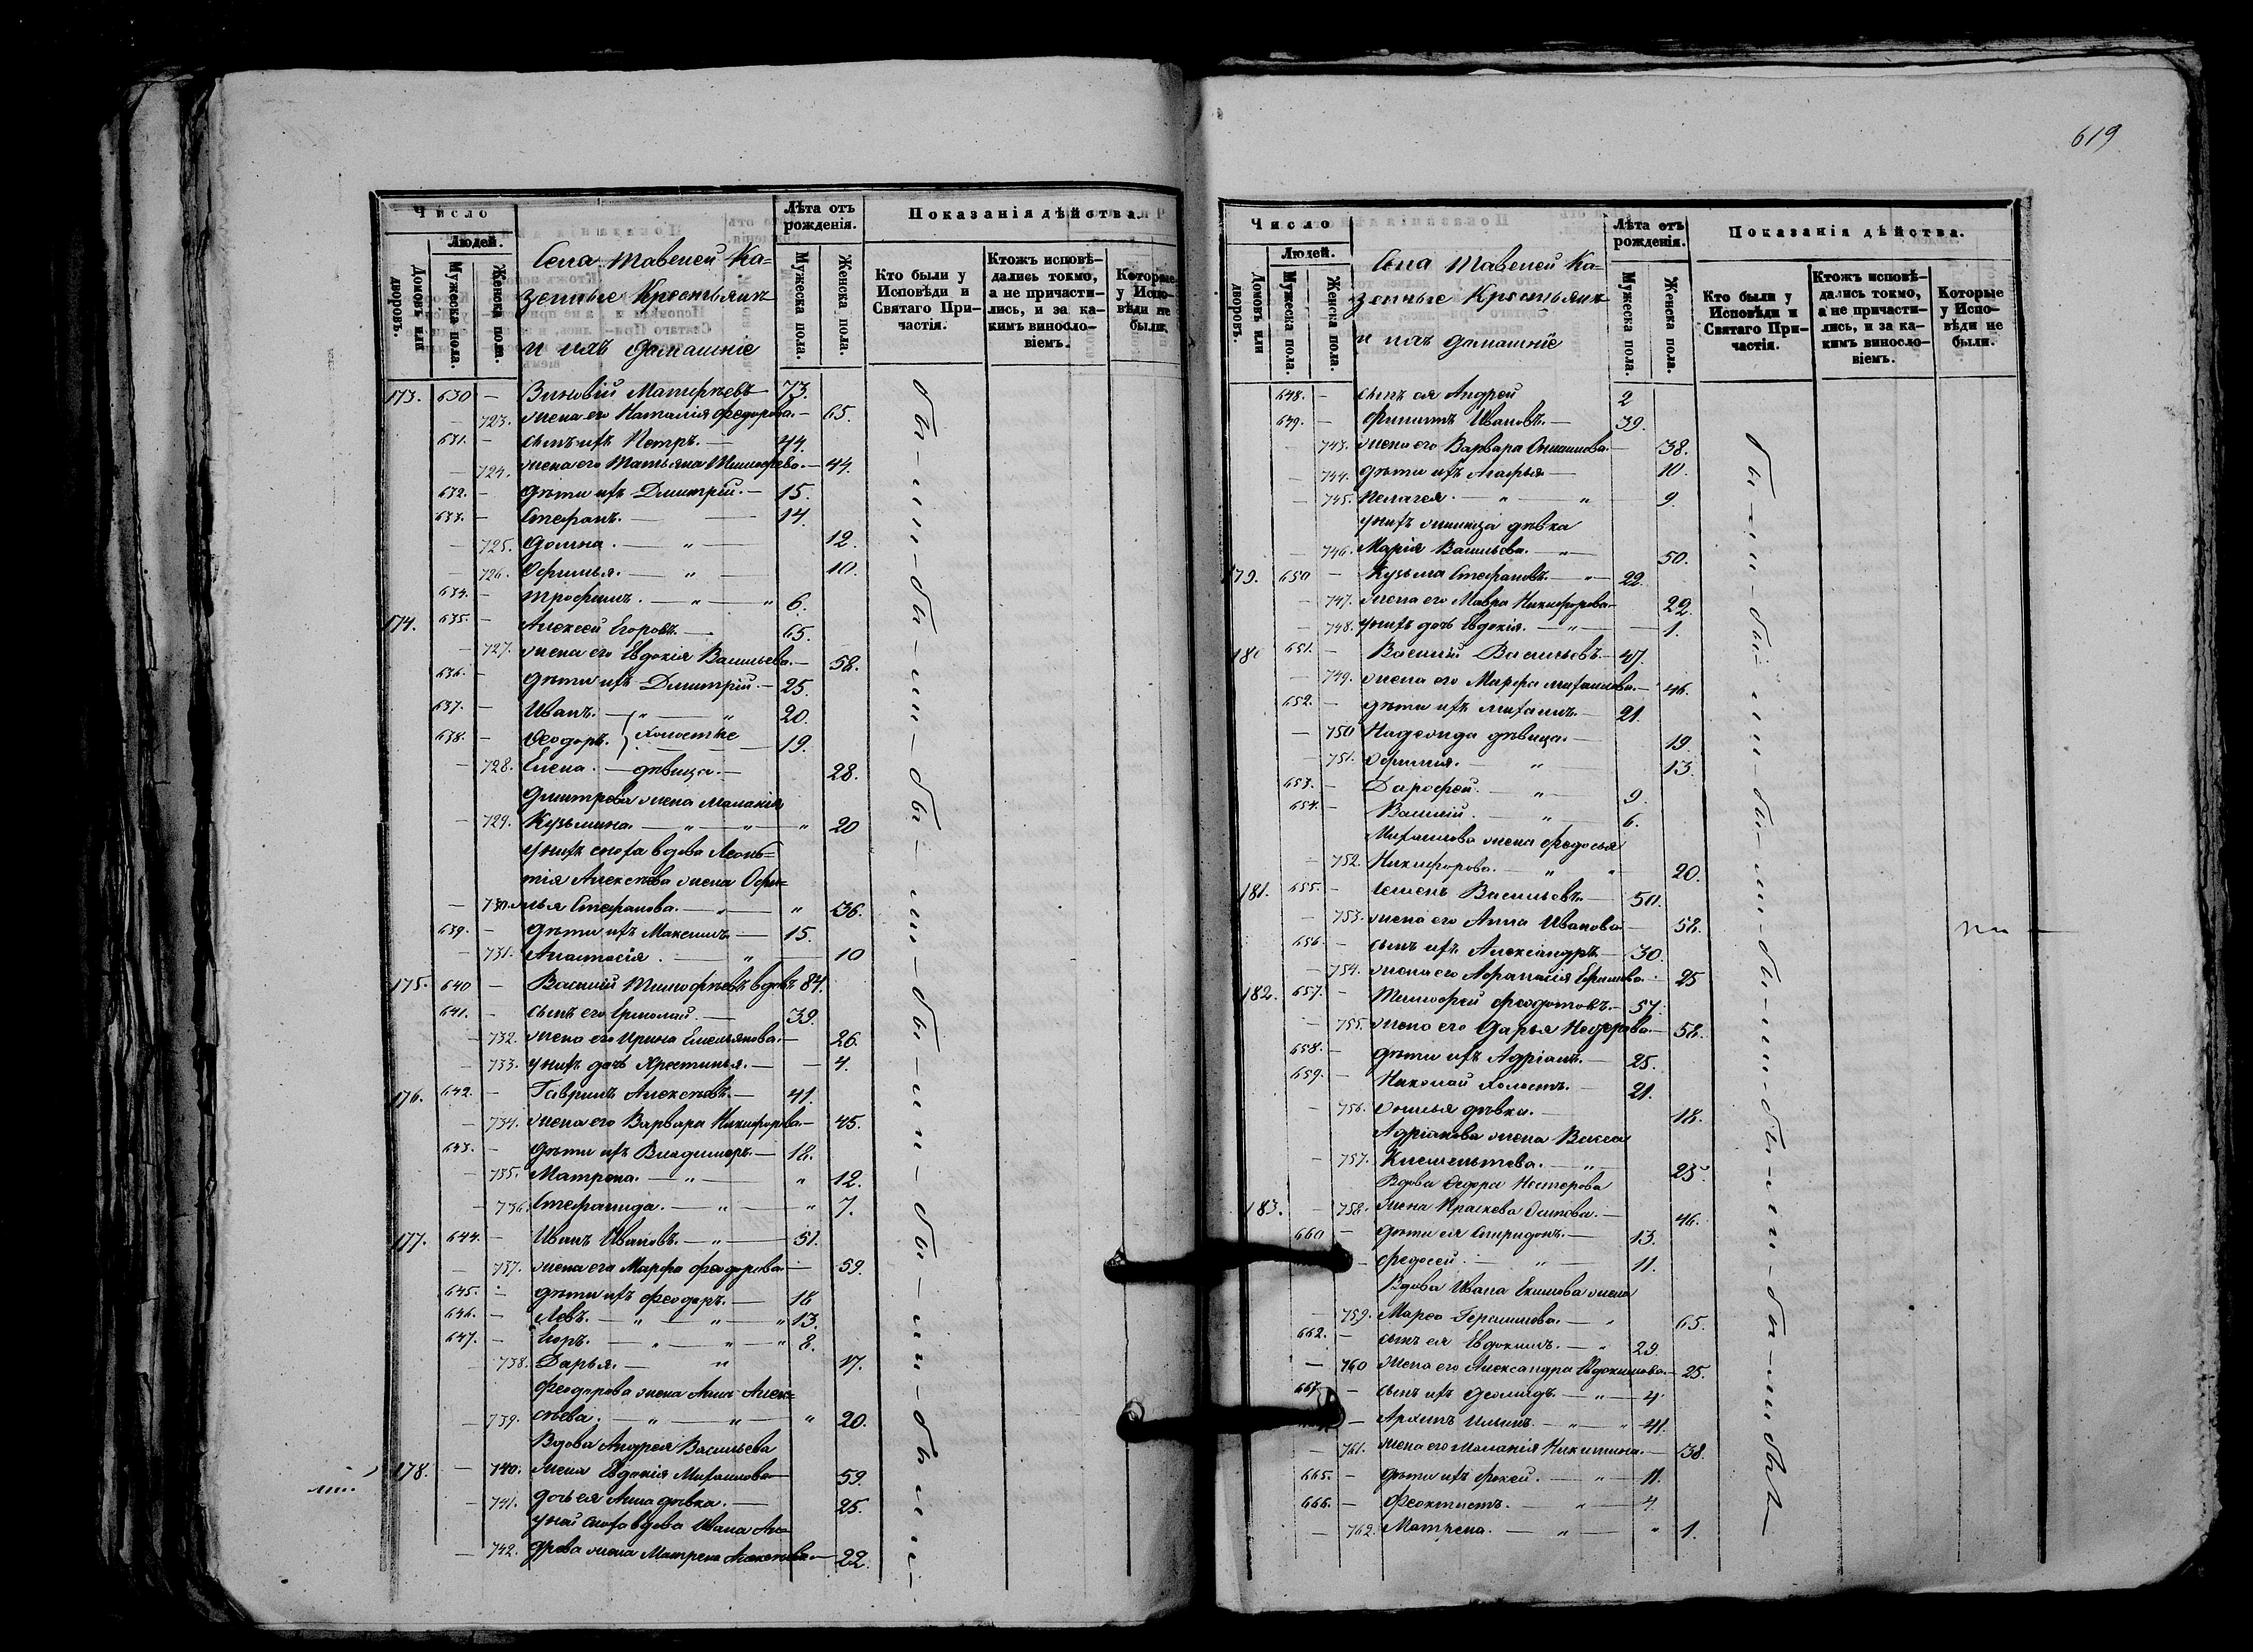 619
Число
Людей.
Домовъ или дворовъ.
Мужеска пола.
Женска пола.
Села Тавеней Ка=
зенные Крестьяне
и ихъ домашніе
Лѣта отъ рожденія.
Мужеска пола.
Женска пола.
Показанія дѣйства.
Кто были у Исповѣди и Святаго При-частія.
Ктожъ исповѣ-дались токмо, а не причасти-лись, и за ка-кимъ виносло-віемъ.
Которые у Испо-вѣди не были.
173. 630 — Зиновій Матѳѣевъ 73.
— 723. жена его Наталія Ѳеодорова. — 65.
631. — сынъ ихъ Петръ. — 44.
— 724. жена его Татьяна Тимоѳеева. — 44.
632. — дѣти ихъ Димитрій. — 15.
633. — Стефанъ. — 14.
— 725. Домна. — „ — 12.
— 726. Офимья. — „ — 10.
634. — Трофимъ. — „ — „ 6.
174. 635. — Алексей Егоровъ. — 65.
— 727. жена его Евдокія Васильева. — 58.
636. — дѣти ихъ Димитрій. — 25.
637. — Иванъ. — „ — „ 20.
638. — Ѳеодоръ. } холостые 19.
— 728. Елена. — дѣвица. — 28.
Дмитрева жена Маланія
— 729. Кузьмина. — „ — „ — „ 20
у нихъ сноха вдова Леонь=
тія Алексѣева жена Офи=
— 730. мья Стефанова. — „ — „ 36.
639. — дѣти ихъ Максимъ — 15.
— 731. Анастасія. — „ — 10
175. 640 — Василій Тимоѳѣевъ вдовъ 84.
641. — сынъ его Ермолай. — 39.
— 732. жена его Ирина Емельянова. — 26.
— 733. у нихъ дочь Христинья. — 4.
176. 642. — Гаврилъ Алексѣевъ. — 41.
— 734. жена его Варвара Никифорова — 45.
643. — дѣти ихъ Владимеръ. — 18.
— 735. Матрена. — „ — „ 12.
— 736. Стефанида. — „ — „ 7.
177. 644. — Иванъ Ивановъ. — „ — 51.
— 737. жена его Марфа Ѳеодорова — 59.
645. — дѣти ихъ Ѳеодоръ. — 18
646. — Левъ. — „ — „ — „ 13.
647. — Егоръ. — „ — „ — „ 8.
— 738. Дарья. — „ 17.
Ѳеодорова жена Анна Алек=
— 739. сѣева. — „ — „ — „ 20.
Вдова Андрея Васильева
178. — 740. жена Евдокія Михайлова 59.
— 741. дочь ея Анна дѣвка. — 25.
у ней сноха вдова Ивана Ан=
— 742. древа жена Матрена Алексѣева — 22.
бы — ли — бы — ли — бы — ли — бы — ли — бы — ли — были —
Число
Людей.
Домовъ или дворовъ.
Мужеска пола.
Женска пола.
Села Тавеней Ка=
зенные Крестьяне
и ихъ домашніе
Лѣта отъ рожденія.
Мужеска пола.
Женска пола.
Показанія дѣйства.
Кто были у Исповѣди и Святаго При-частія.
Ктожъ исповѣ-дались токмо, а не причасти-лись, и за ка-кимъ виносло-віемъ.
Которые у Испо-вѣди не были.
648. — сынъ ея Андрей 2
649. — Филиппъ Ивановъ. — 39.
— 743. жена его Варвара Онисимова. — 38.
— 744. дѣти ихъ Агафья — 10.
— 745. Пелагея. — „ — „ 9.
у нихъ жилица дѣвка
— 746. Марія Васильева. — „ — 50.
179. 650 — Кузьма Стефановъ. — „ — 22.
— 747. жена его Мавра Никифорова 22.
— 748. у нихъ дочь Евдокія. — „ — 1.
180 651. — Василій Васильевъ. — 47.
— 749. жена его Марфа Михаилова. — 46.
652. — дѣти ихъ Михаилъ. — 21.
— 750 Надежда дѣвица. — 19.
— 751. Офимія. — „ — 13.
653. — Дарофей. — „ — 9.
654. — Василій. — „ — 6.
Михаилова жена Ѳедосья
— 752. Никифорова. — „ — „ 20.
181. 655. — Семенъ Васильевъ. — 50.
— 753. жена его Анна Иванова 58.
656. — сынъ ихъ Александръ — 30.
— 754. жена его Афанасія Ефимова. 25
182. 657. — Тимофей Ѳеодотовъ. — 57.
— 755. жена его Дарья Нестерова. — 58.
658. — дѣти ихъ Адріанъ. — 25.
659. — Николай холостъ. — 21.
— 756. дѣвка. — 18.
Адріанова жена Васса
— 757. Клементьева. — „ — 23.
Вдова Ѳедора Нестерова
183. — 758. жена Праскева Осипова. — 46.
660 — дѣти ея Спиридонъ. — 13.
— Ѳедосей. — „ — 11.
Вдова Ивана Екимова жена
— 759. Марѳа Герасимова. — „ 65.
662. — сынъ ея Евдокимъ. — „ 29
— 760 жена его Александра Евдокимова. — 25.
663 — сынъ ихъ Деомидъ — „ — 4.
— Архипъ Ильинъ. — „ — „ 41.
— 761. жена его Маланія Никитина. — 38.
665. — дѣти ихъ Фокей. — „ — 11.
666. — Ѳеоктистъ. — „ — 4.
— 762. Матрена. — „ — „ 1.
бы — ли — бы — ли — бы — ли — бы — ли — бы — ли — бы — ли — бы — ли